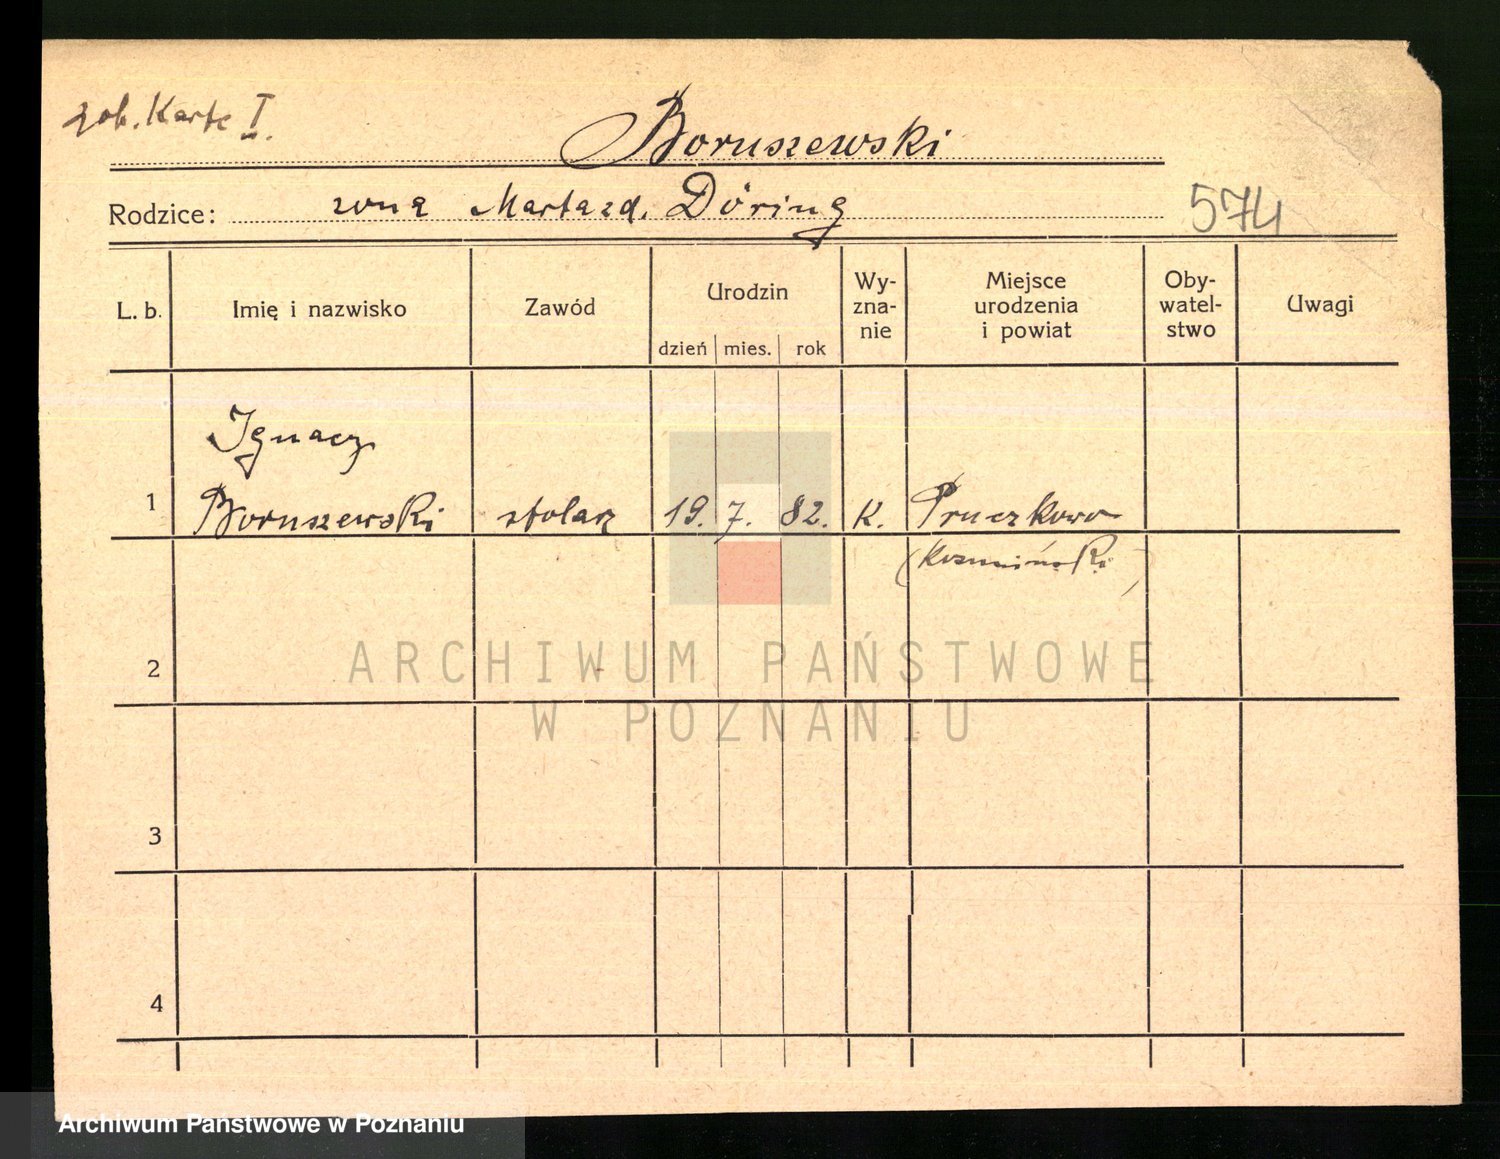 zob. Kartę I.
Boruszewski
Rodzice: żona Marta zd. Döring
574
L. b.
Imię i nazwisko
Zawód
Urodzin
dzień mies. rok
Wy-
zna-
nie
Miejsce
urodzenia
i powiat
Oby-
watel-
stwo
Uwagi
Ignacy
1 Boruszewski stolarz 19. 7. 82. K. Pruczkowo
(Koźmiński)
2
3
4
ARCHIWUM PAŃSTWOWE
W POZNANIU
Archiwum Państwowe w Poznaniu